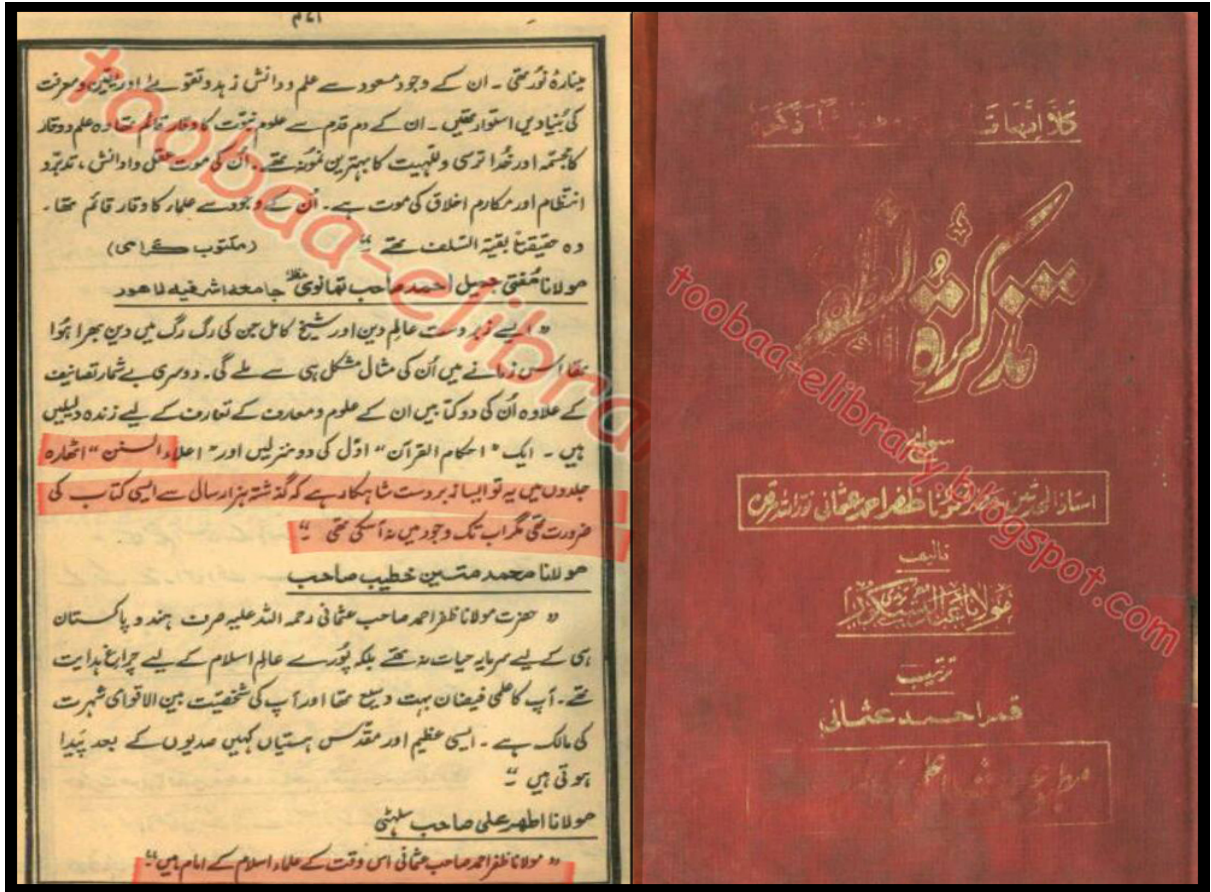 مینارۂ نور تھی ۔ ان کے وجود مسعود سے علم و دانش زہد و تقوےٰ اور یقین و معرفت
کی بنیادیں استوار تھیں ۔ ان کے دم قدم سے علوم نبوت کا وقار قائم تھا وہ علم و وقار
کا مجسمہ اور خدا ترسی و للہیت کا بہترین نمونہ تھے ۔ اُن کی موت عقل و دانش ، تدبر و
انتظام اور مکارم اخلاق کی موت ہے ۔ اُن کے وجود سے علماء کا وقار قائم تھا ۔
وہ حقیقتاً بقیۃ السلف تھے " (مکتوب گرامی)
مولانا مفتی جمیل احمد صاحب تھانوی مدظلہ جامعہ اشرفیہ لاہور
" ایسے زبردست عالم دین اور شیخ کامل جن کی رگ رگ میں دین بھرا ہُوا
تھا اس زمانے میں اُن کی مثال مشکل ہی سے ملے گی ۔ دوسری بے شمار تصانیف
کے علاوہ اُن کی دو کتابیں ان کے علوم و معارف کے تعارف کے لیے زندہ دلیلیں
ہیں ۔ ایک " احکام القرآن " اوّل کی دو منزلیں اور " اعلاء السنن " اٹھارہ
جلدوں میں یہ تو ایسا زبردست شاہکار ہے کہ گذشتہ ہزار سالی سے ایسی کتاب کی
ضرورت تھی مگر اب تک وجود میں نہ آسکی تھی "
مولانا محمد متین خطیب صاحب
" حضرت مولانا ظفر احمد صاحب عثمانی رحمہ اللہ علیہ صرف ہند و پاکستان
ہی کے لیے سرمایہ حیات نہ تھے بلکہ پُورے عالم اسلام کے لیے چراغ ہدایت
تھے ۔ آپ کا علمی فیضان بہت وسیع تھا اور آپ کی شخصیت بین الاقوامی شہرت
کی مالک ہے ۔ ایسی عظیم اور مقدس ہستیاں کہیں صدیوں کے بعد پَیدا
ہوتی ہیں "
مولانا اطہر علی صاحب سلہٹی
" مولانا ظفر احمد صاحب عثمانی اس وقت کے علماء اسلام کے امام ہیں "
toobaa-elibra
کلا انہا تذکرہ
تذکرۃ الظفر
سوانح
استاذ المحدثین مولانا ظفر احمد عثمانی نور اللہ مرقدہ
تالیف
مولانا عبدالشکور ترمذی
ترتیب
قمر احمد عثمانی
toobaa-elibrary.blogspot.com